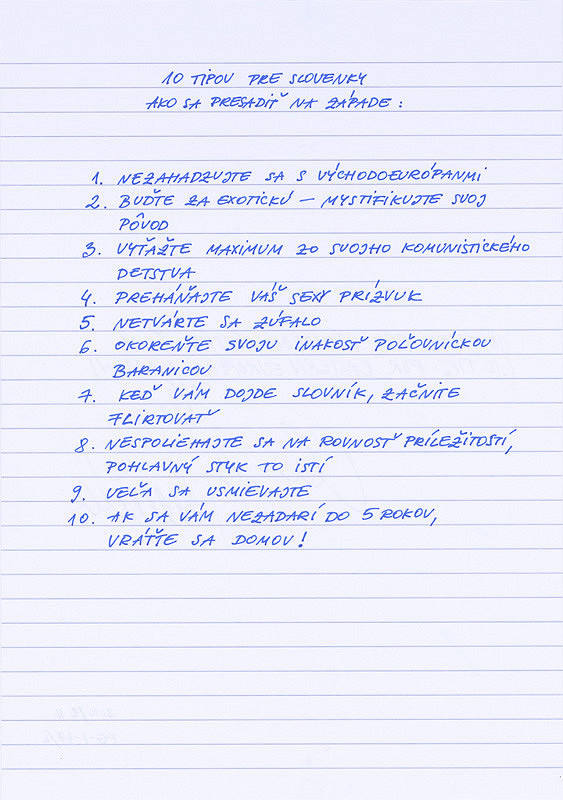 10 TIPOV PRE SLOVENKY
AKO SA PRESADIŤ NA ZÁPADE:
1. NEZAHADZUJTE SA S VÝCHODOEURÓPANMI
2. BUĎTE ZA EXOTICKÚ – MYSTIFIKUJTE SVOJ
PÔVOD
3. VYŤAŽTE MAXIMUM ZO SVOJHO KOMUNISTICKÉHO
DETSTVA
4. PREHÁŇAJTE VÁŠ SEXY PRÍZVUK
5. NETVÁRTE SA ZÚFALO
6. OKOREŇTE SVOJU INAKOSŤ POĽOVNÍCKOU
BARANICOU
7. KEĎ VÁM DOJDE SLOVNÍK, ZAČNITE
FLIRTOVAŤ
8. NESPOLIEHAJTE SA NA ROVNOSŤ PRÍLEŽITOSTÍ,
POHLAVNÝ STYK TO ISTÍ
9. VEĽA SA USMIEVAJTE
10. AK SA VÁM NEZADARÍ DO 5 ROKOV,
VRÁŤTE SA DOMOV!